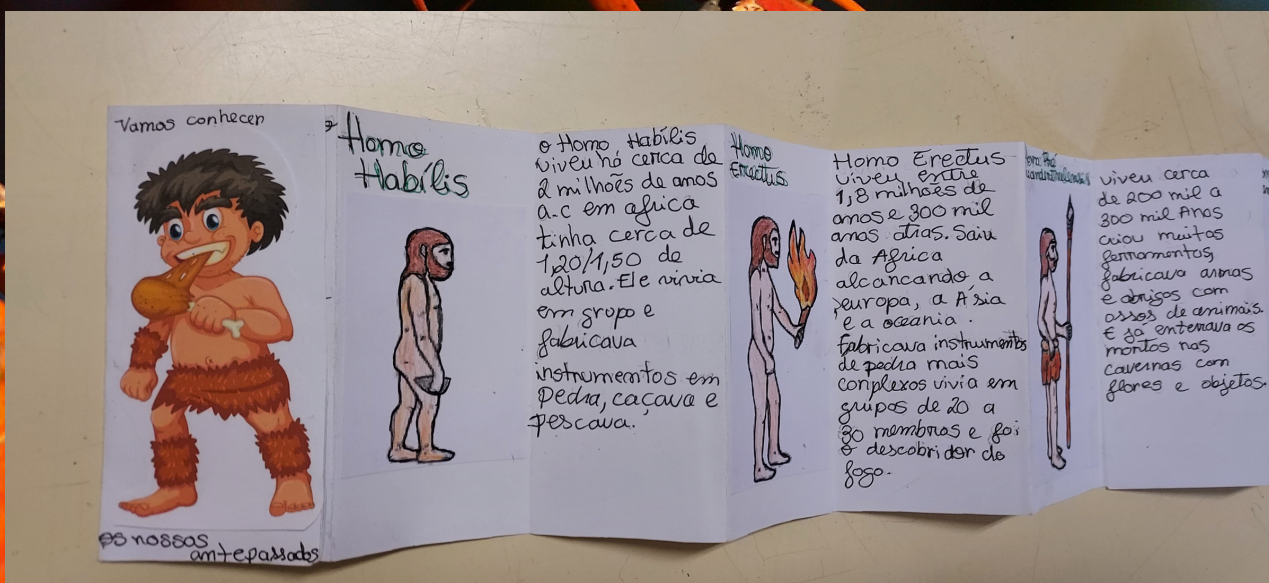 Vamos conhecer
os nossos
antepassados
Homo
Habílis
o Homo Habílis
viveu há cerca de
2 milhões de anos
a.c em africa
tinha cerca de
1,20/1,50 de
altura. Ele vivia
em grupo e
fabricava
instrumentos em
Pedra, caçava e
pescava.
Homo
Erectus
Homo Erectus
viveu entre
1,8 milhões de
anos e 300 mil
anos atras. Saiu
da Africa
alcancando, a
europa, a Ásia
e a oceania.
fabricava instrumentos
de pedra mais
conplexos vivia em
grupos de 20 a
30 membros e foi
o descobridor do
fogo.
viveu cerca
de 200 mil a
300 mil Anos
criou muitas
ferramentas,
fabricava armas
e abrigos com
ossos de animais.
E já enterrava os
mortos nas
cavernas com
flores e objetos.